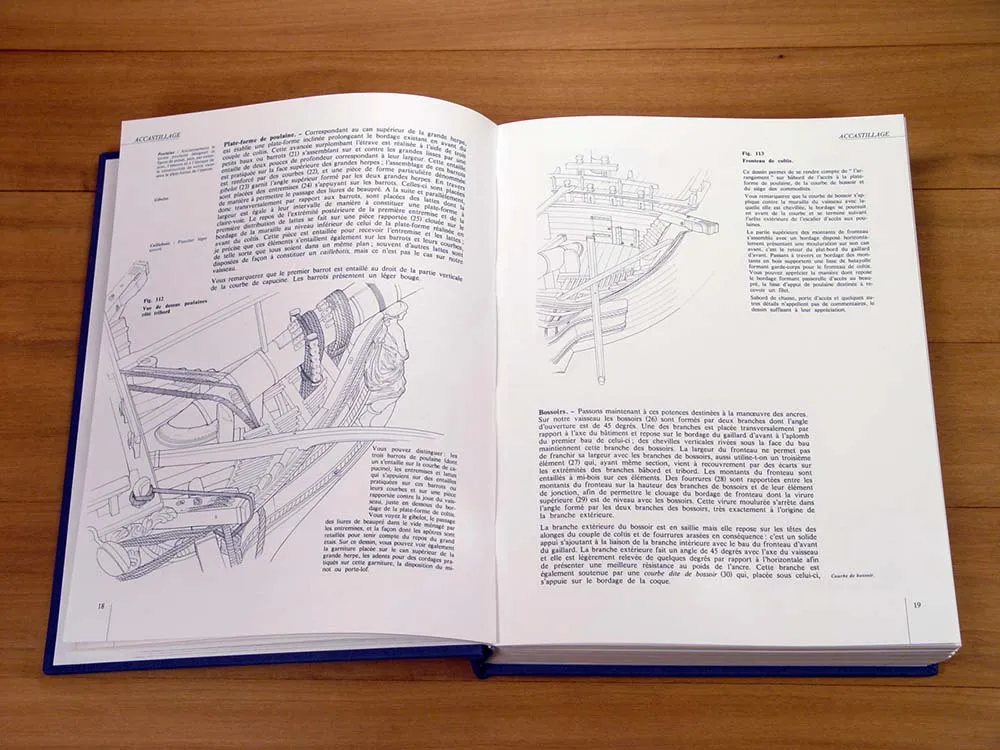 ACCASTILLAGE
Plate-forme de poulaine. – Correspondant au can supérieur de la grande herpe,
est établie une plate-forme inclinée prolongeant le bordage existant en avant du
couple de coltis. Cette avancée surplombant l'étrave est réalisée à l'aide de trois
petits baux ou barrots (21) s'assemblant sur et contre les grandes lisses par une
entaille de deux pouces de profondeur correspondant à leur largeur. Cette entaille
est pratiquée sur la face supérieure des grandes herpes ; l'assemblage de ces barrots
est renforcé par des courbes (22), et une pièce de forme particulière dénommée
gibelot (23) garnit l'angle supérieur formé par les deux grandes herpes. En travers
sont placées des entremises (24) s'appuyant sur les barrots. Celles-ci sont placées
de manière à permettre le passage des liures de beaupré. A la suite et parallèlement,
donc transversalement par rapport aux barrots, sont placées des lattes dont la
largeur est égale à leur intervalle de manière à constituer une plate-forme à
claire-voie. Le repos de l'extrémité postérieure de la première entremise et de la
première distribution de lattes se fait sur une pièce rapportée (25) clouée sur le
bordage de la muraille au niveau inférieur de celui de la plate-forme réalisée en
avant du coltis. Cette pièce est entaillée pour recevoir l'entremise et les lattes ;
je précise que ces éléments s'entaillent également sur les barrots et leurs courbes,
de telle sorte que tous soient dans un même plan ; souvent d'autres lattes sont
disposées de façon à constituer un caillebotis, mais ce n'est pas le cas sur notre
vaisseau.
Vous remarquerez que le premier barrot est entaillé au droit de la partie verticale
de la courbe de capucine. Les barrots présentent un léger bouge.
Gibelot
Caillebotis : Plancher léger
Fig. 112
Vue de dessus poulaines
côté tribord
Vous pouvez distinguer : les
trois barrots de poulaine (dont
un s'entaille sur la courbe de ca-
pucine), les entremises et lattes
qui s'appuient sur des entailles
pratiquées sur ces barrots ou
leurs courbes et sur une pièce
rapportée contre la joue du vais-
seau, juste en dessous du bor-
dage de la plate-forme de coltis.
Vous voyez le gibelot, le passage
des liures de beaupré dans le vide ménagé par
les entremises, et la façon dont les apôtres sont
retaillés pour tenir compte du repos du grand
étai. Sur ce dessin, vous pouvez voir également
la garniture placée sur le can supérieur de la
grande herpe, les adents pour des cordages pra-
tiqués sur cette garniture, la disposition du mi-
not ou porte-lof.
18
ACCASTILLAGE
Fig. 113
Fronteau de coltis.
Ce dessin permet de se rendre compte de " l'ar-
rangement " sur bâbord de l'accès à la plate-
forme de poulaine, de la courbe de bossoir et
du siège des commodités.
Vous remarquerez que la courbe de bossoir s'ap-
plique contre la muraille du vaisseau avec la-
quelle elle est chevillée, le bordage se poursuit
en avant de la courbe et se termine suivant
l'arête extérieure de l'escalier d'accès aux pou-
laines.
La partie supérieure des montants de fronteau
s'assemble avec un bordage disposé horizontale-
ment présentant une mouluration sur son can
avant, c'est le retour du plat-bord du gaillard
d'avant. Passant à travers ce bordage des mon-
tants en bois supportent une lisse de batayolle
formant garde-corps pour le fronteau de coltis.
Vous pouvez apprécier la manière dont repose
le bordage formant passerelle d'accès au beau-
pré, la lisse d'appui de poulaine destinée à re-
cevoir un filet.
Sabord de chasse, porte d'accès et quelques au-
tres détails n'appellent pas de commentaires, le
dessin suffisant à leur appréciation.
Bossoirs. – Passons maintenant à ces potences destinées à la manœuvre des ancres.
Sur notre vaisseau les bossoirs (26) sont formés par deux branches dont l'angle
d'ouverture est de 45 degrés. Une des branches est placée transversalement par
rapport à l'axe du bâtiment et repose sur le bordage du gaillard d'avant à l'aplomb
du premier bau de celui-ci ; des chevilles verticales rivées sous la face du bau
maintiennent cette branche des bossoirs. La largeur du fronteau ne permet pas
de franchir sa largeur avec les branches de bossoirs, aussi utilise-t-on un troisième
élément (27) qui, ayant même section, vient à recouvrement par des écarts sur
les extrémités des branches bâbord et tribord. Les montants du fronteau sont
entaillés à mi-bois sur ces éléments. Des fourrures (28) sont rapportées entre les
montants du fronteau sur la hauteur des branches de bossoirs et de leur élément
de jonction, afin de permettre le clouage du bordage de fronteau dont la virure
supérieure (29) est de niveau avec les bossoirs. Cette virure moulurée s'arrête dans
l'angle formé par les deux branches des bossoirs, très exactement à l'origine de
la branche extérieure.
La branche extérieure du bossoir est en saillie mais elle repose sur les têtes des
alonges du couple de coltis et de fourrures arasées en conséquence : c'est un solide
appui s'ajoutant à la liaison de la branche intérieure avec le bau du fronteau d'avant
du gaillard. La branche extérieure fait un angle de 45 degrés avec l'axe du vaisseau
et elle est légèrement relevée de quelques degrés par rapport à l'horizontale afin
de présenter une meilleure résistance au poids de l'ancre. Cette branche est
également soutenue par une courbe dite de bossoir (30) qui, placée sous celui-ci,
s'appuie sur le bordage de la coque.
Courbe de bossoir.
19